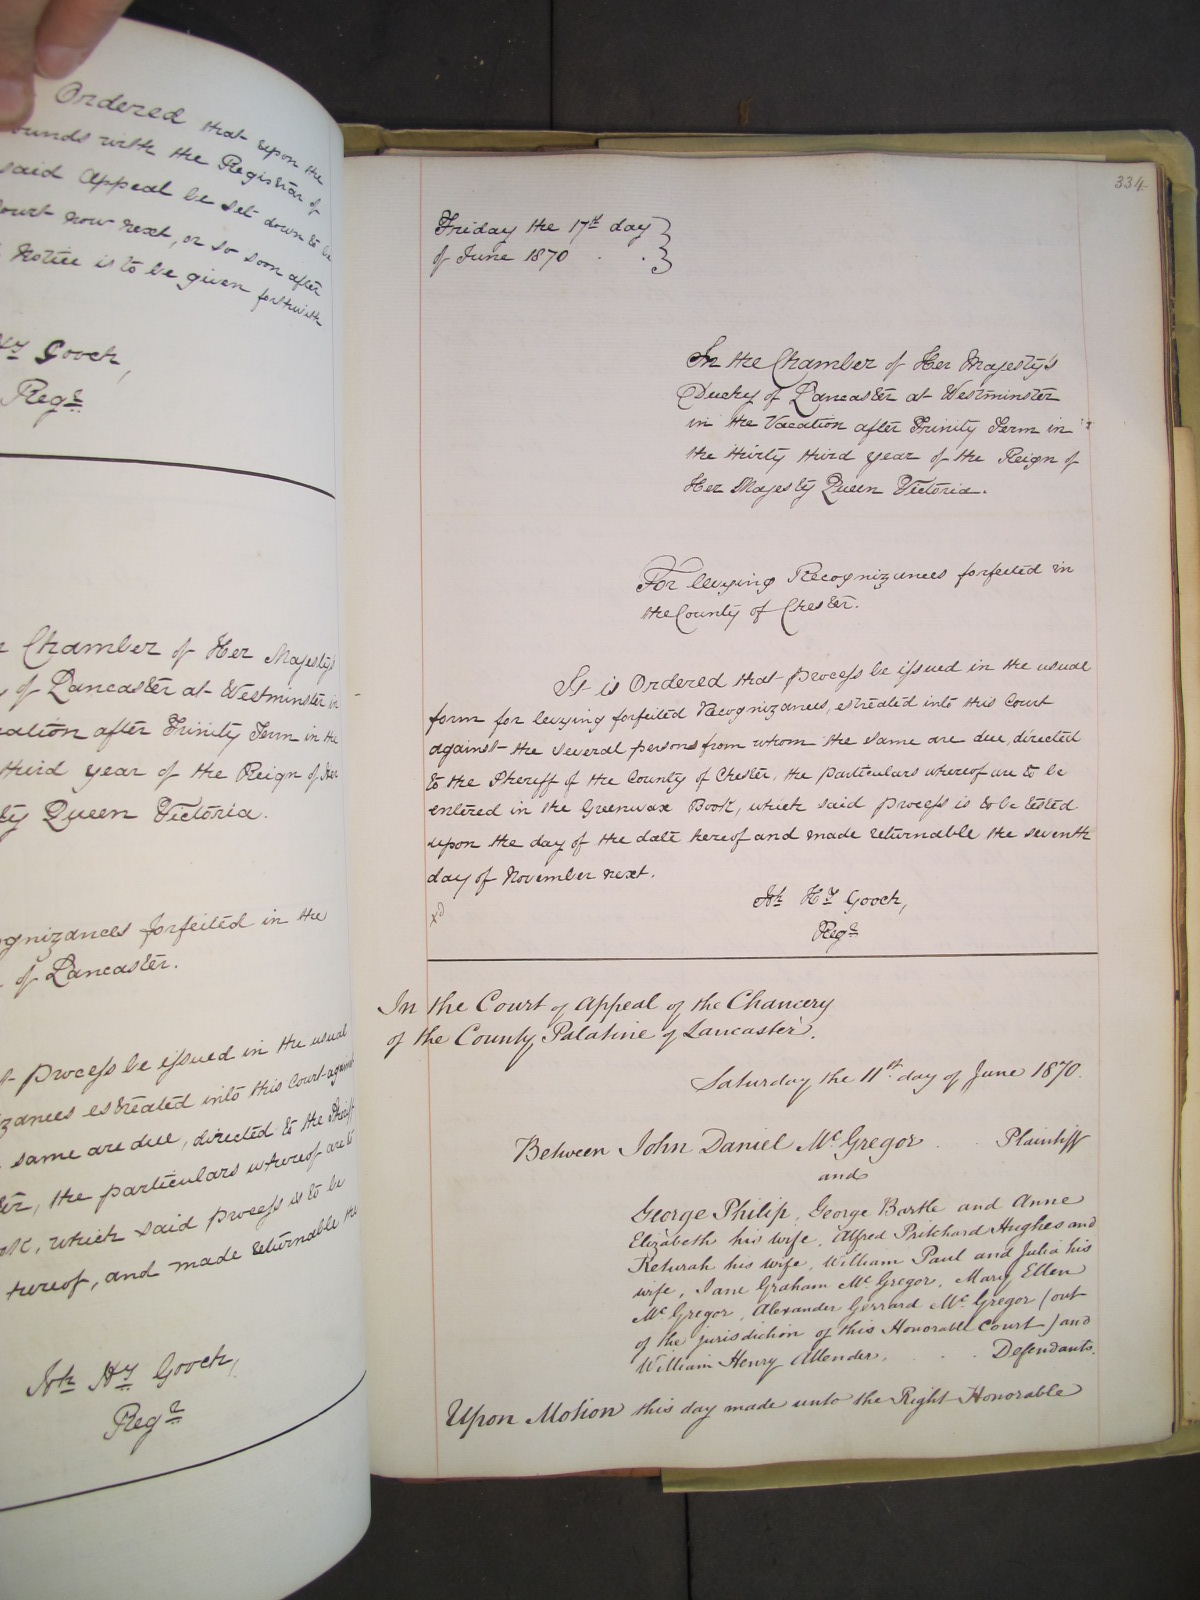 Ordered that upon the
ounds with the Registrar of
said Appeal be set down to be
Court now next, or so soon after
Notice is to be given forthwith
Hy Gooch,
Regr
Chamber of Her Majesty's
of Lancaster at Westminster in
cation after Trinity Term in the
third year of the Reign of Her
ty Queen Victoria.
ognizances forfeited in the
of Lancaster.
t Process be issued in the usual
zances estreated into this Court against
same are due, directed to the Sheriff
er, the particulars whereof are to
ook, which said Process is to be
hereof, and made returnable the
Jno Hy Gooch,
Regr
334
Friday the 17th day
of June 1870
In the Chamber of Her Majesty's
Duchy of Lancaster at Westminster
in the Vacation after Trinity Term in
the thirty third year of the Reign of
Her Majesty Queen Victoria.
For levying Recognizances forfeited in
the County of Chester.
It is Ordered that Process be issued in the usual
form for levying forfeited Recognizances, estreated into this Court
against the several persons from whom the same are due, directed
to the Sheriff of the County of Chester, the particulars whereof are to be
entered in the Greenwax Book, which said Process is to be tested
upon the day of the date hereof and made returnable the seventh
day of November next.
Jno Hy Gooch,
Regr
In the Court of Appeal of the Chancery
of the County Palatine of Lancaster.
Saturday the 11th day of June 1870.
Between John Daniel McGregor . . Plaintiff
and
George Philip, George Bartle and Anne
Elizabeth his wife, Alfred Pritchard Hughes and
Keturah his wife, William Paul and Julia his
wife, Jane Graham McGregor, Mary Ellen
McGregor, Alexander Gerrard McGregor (out
of the jurisdiction of this Honorable Court) and
William Henry Allender, . . . Defendants.
Upon Motion this day made unto the Right Honorable